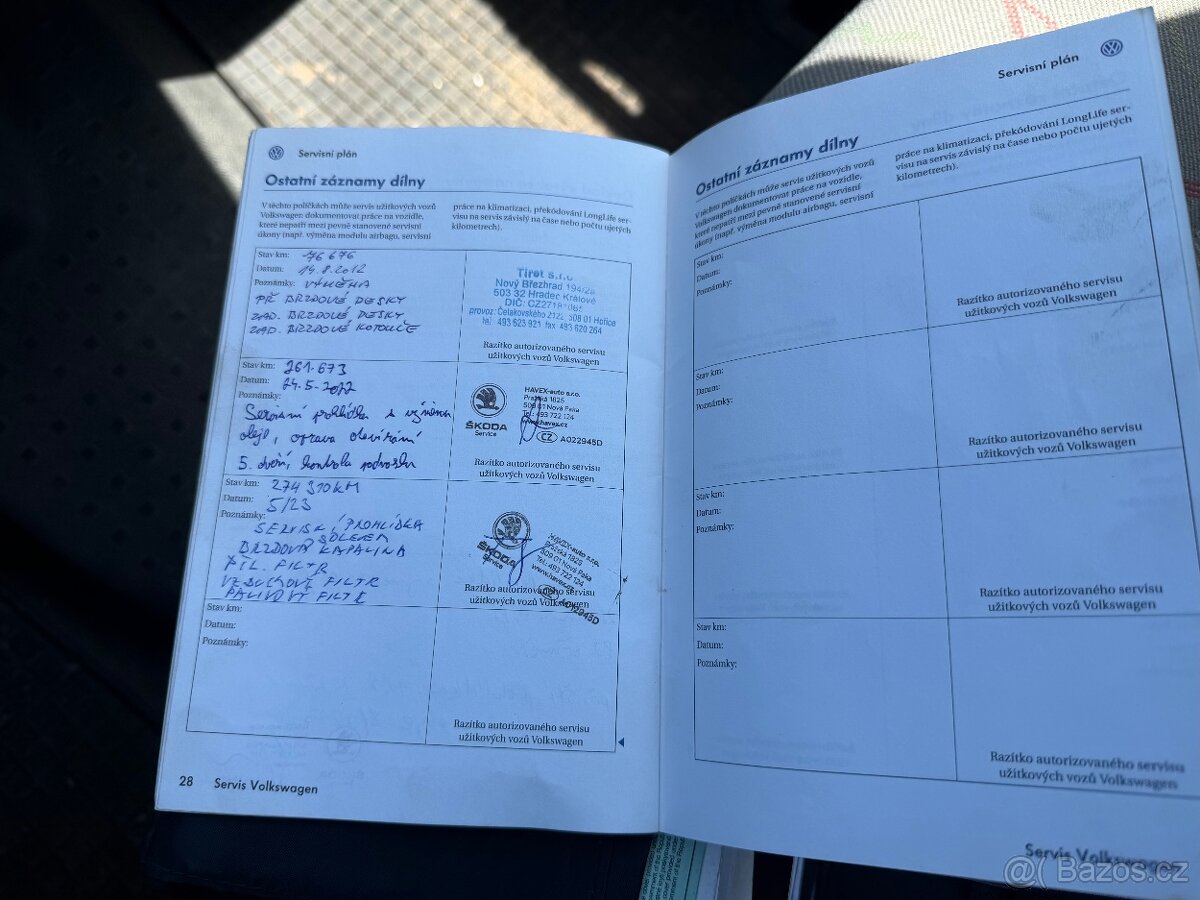 Servisní plán
Ostatní záznamy dílny
V těchto políčkách může servis užitkových vozů
Volkswagen dokumentovat práce na vozidle,
které nepatří mezi pevně stanovené servisní
úkony (např. výměna modulu airbagu, servisní
práce na klimatizaci, překódování LongLife ser-
visu na servis závislý na čase nebo počtu ujetých
kilometrech).
Stav km: 76 676
Datum: 14.8.2012
Poznámky: VÝMĚNA
PŘ BRZDOVÉ DESKY
ZAD. BRZDOVÉ DESKY
ZAD. BRZDOVÉ KOTOUČE
Tiret s.r.o.
Nový Březhrad 194/2a
503 32 Hradec Králové
DIČ: CZ2718
provoz: Čelakovského 2122, 508 01 Hořice
tel. 493 623 921 fax 493 620 264
Razítko autorizovaného servisu
užitkových vozů Volkswagen
Stav km: 261.673
Datum: 24.5.2022
Poznámky:
Servisní prohlídka s výměnou
oleje, oprava otevírání
5. dveří, kontrola podvozku
ŠKODA
Service
HAVEX-auto s.r.o.
Pražská 1825
509 01 Nová Paka
Tel.: 493 722 124
www.havex.cz
CZ A022945D
Razítko autorizovaného servisu
užitkových vozů Volkswagen
Stav km: 274 310 KM
Datum: 5/23
Poznámky:
SERVISNÍ PROHLÍDKA
S OLEJEM
BRZDOVÁ KAPALINA
PYL. FILTR
VZDUCHOVÝ FILTR
PALIVOVÝ FILTR
ŠKODA
Service
HAVEX-auto s.r.o.
Pražská 1825
509 01 Nová Paka
Tel.: 493 722 124
www.havex.cz
CZ A022945D
Razítko autorizovaného servisu
užitkových vozů Volkswagen
Stav km:
Datum:
Poznámky:
Razítko autorizovaného servisu
užitkových vozů Volkswagen
28 Servis Volkswagen
Servisní plán
Ostatní záznamy dílny
V těchto políčkách může servis užitkových vozů
Volkswagen dokumentovat práce na vozidle,
které nepatří mezi pevně stanovené servisní
úkony (např. výměna modulu airbagu, servisní
práce na klimatizaci, překódování LongLife ser-
visu na servis závislý na čase nebo počtu ujetých
kilometrech).
Stav km:
Datum:
Poznámky:
Razítko autorizovaného servisu
užitkových vozů Volkswagen
Stav km:
Datum:
Poznámky:
Razítko autorizovaného servisu
užitkových vozů Volkswagen
Stav km:
Datum:
Poznámky:
Razítko autorizovaného servisu
užitkových vozů Volkswagen
Stav km:
Datum:
Poznámky:
Razítko autorizovaného servisu
užitkových vozů Volkswagen
Servis Volkswagen
Bazos.cz